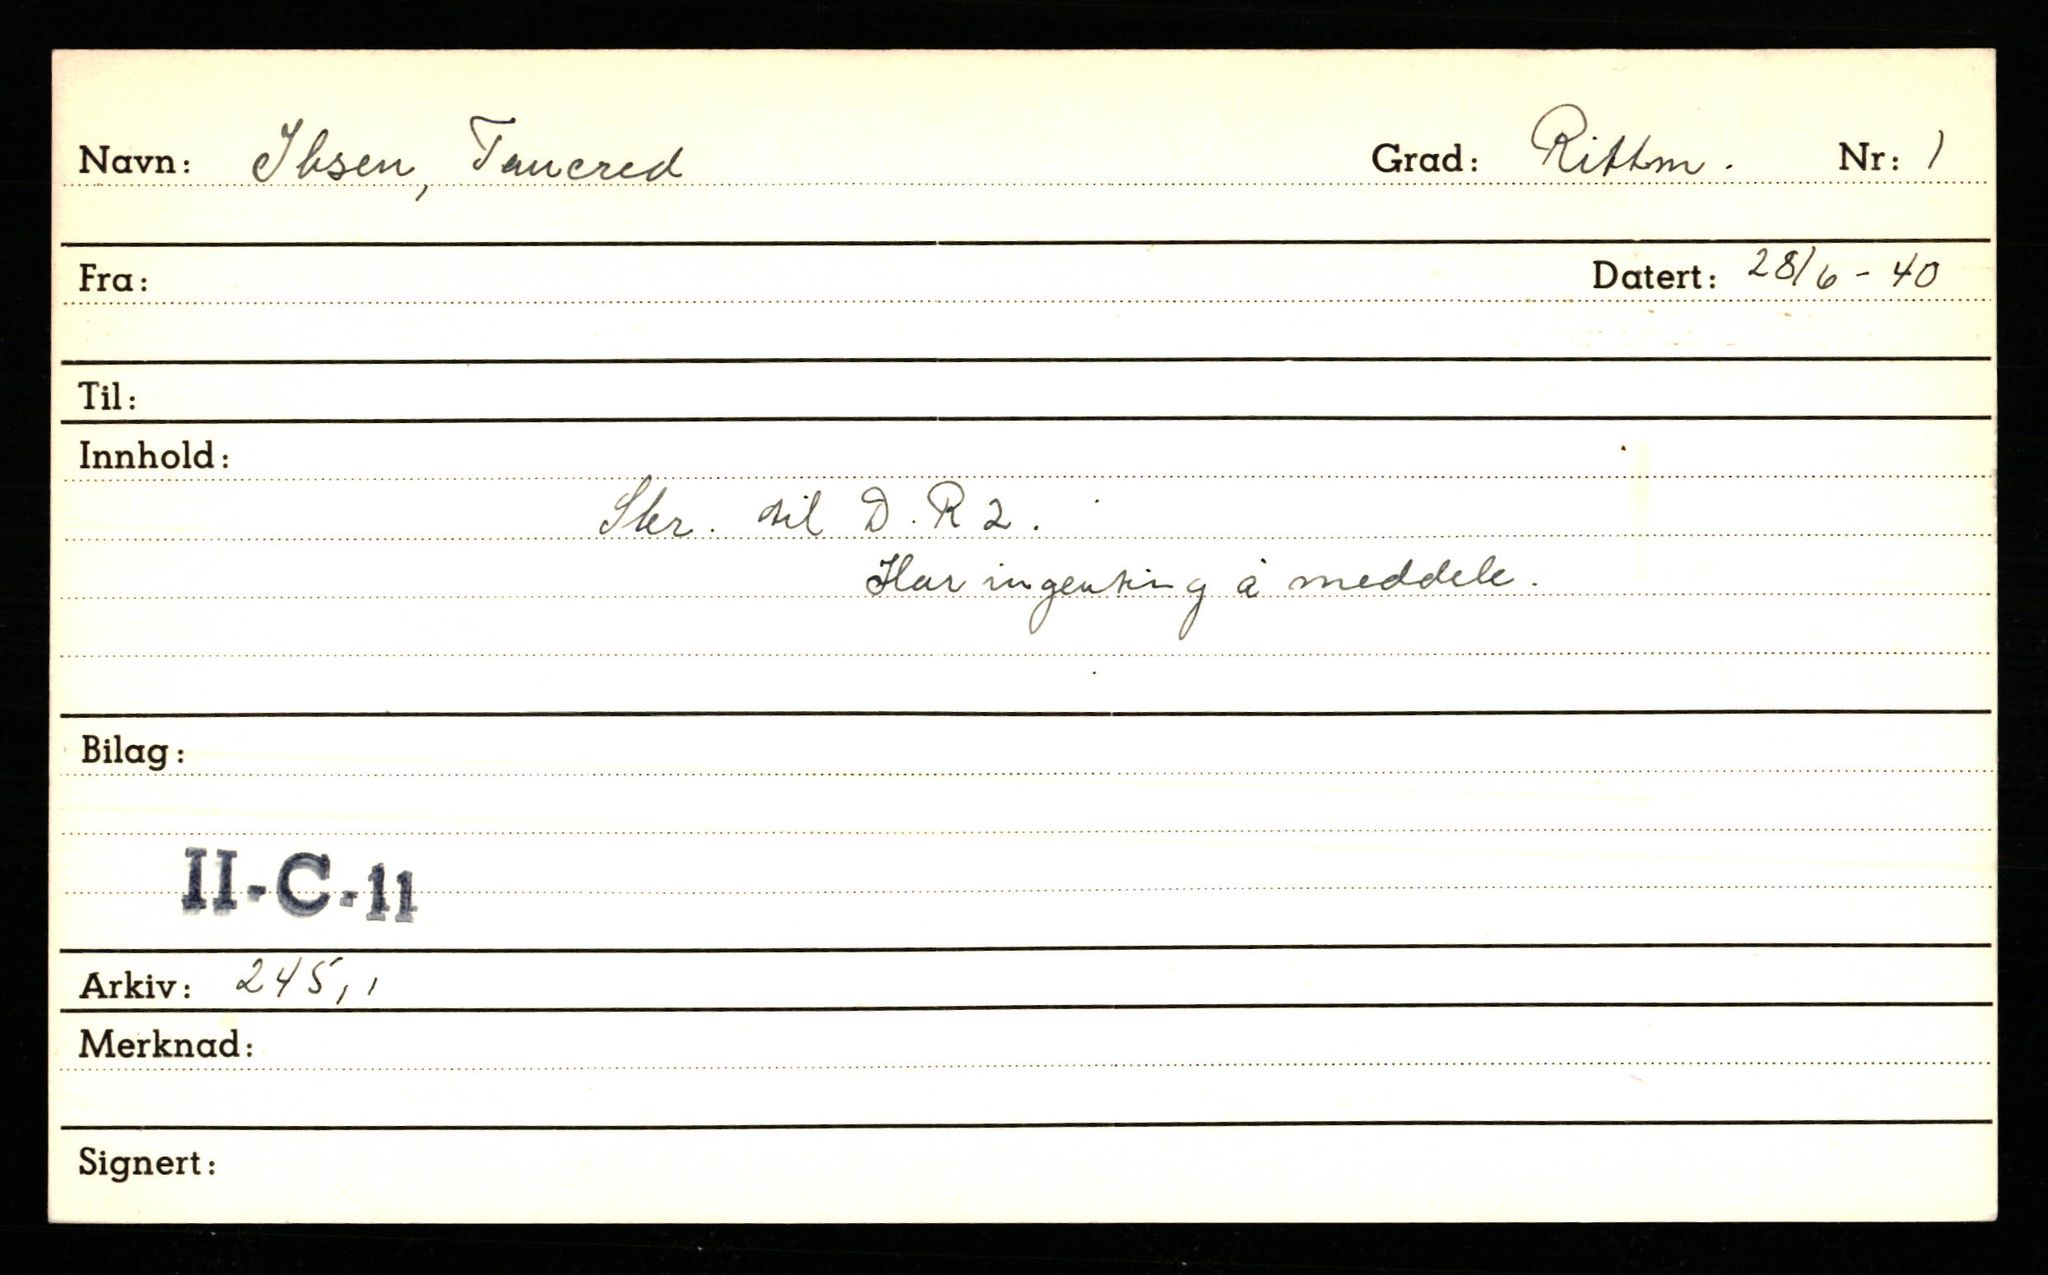 Navn: Ibsen, Tancred Grad: Rittm. Nr: 1
Fra: Datert: 28/6-40
Til:
Innhold:
Skr. til D.R 2.
Har ingenting å meddele.
Bilag:
II-C-11
Arkiv: 245,1
Merknad:
Signert: